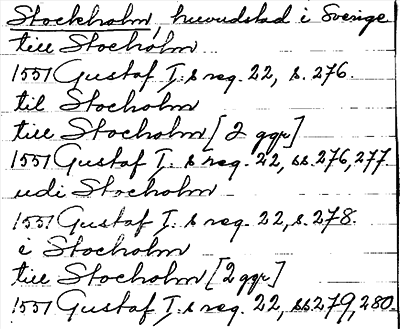 Stockholm, huvudstad i Sverige
till Stocholm
1551 Gustaf I:s reg. 22, s. 276.
til Stocholm
till Stocholm [2 ggr]
1551 Gustaf I:s reg. 22, ss. 276, 277
udi Stocholm
1551 Gustaf I:s reg. 22, s. 278.
i Stocholm
till Stocholm [2 ggr]
1551 Gustaf I:s reg. 22, ss 279, 280